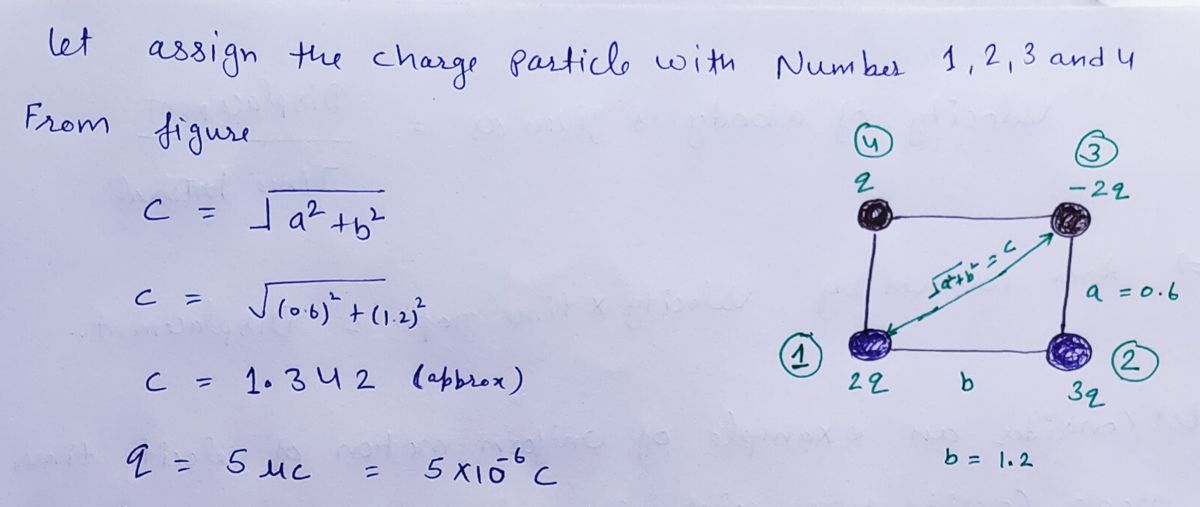 let assign the charge particle with Number 1, 2, 3 and 4
From figure
④ ③
q -2q
c = √a²+b²
√a²+b² = c
c = √(0.6)²+(1.2)²
a = 0.6
① ②
c = 1.342 (approx)
2q b 3q
b = 1.2
q = 5 μc = 5×10⁻⁶ C